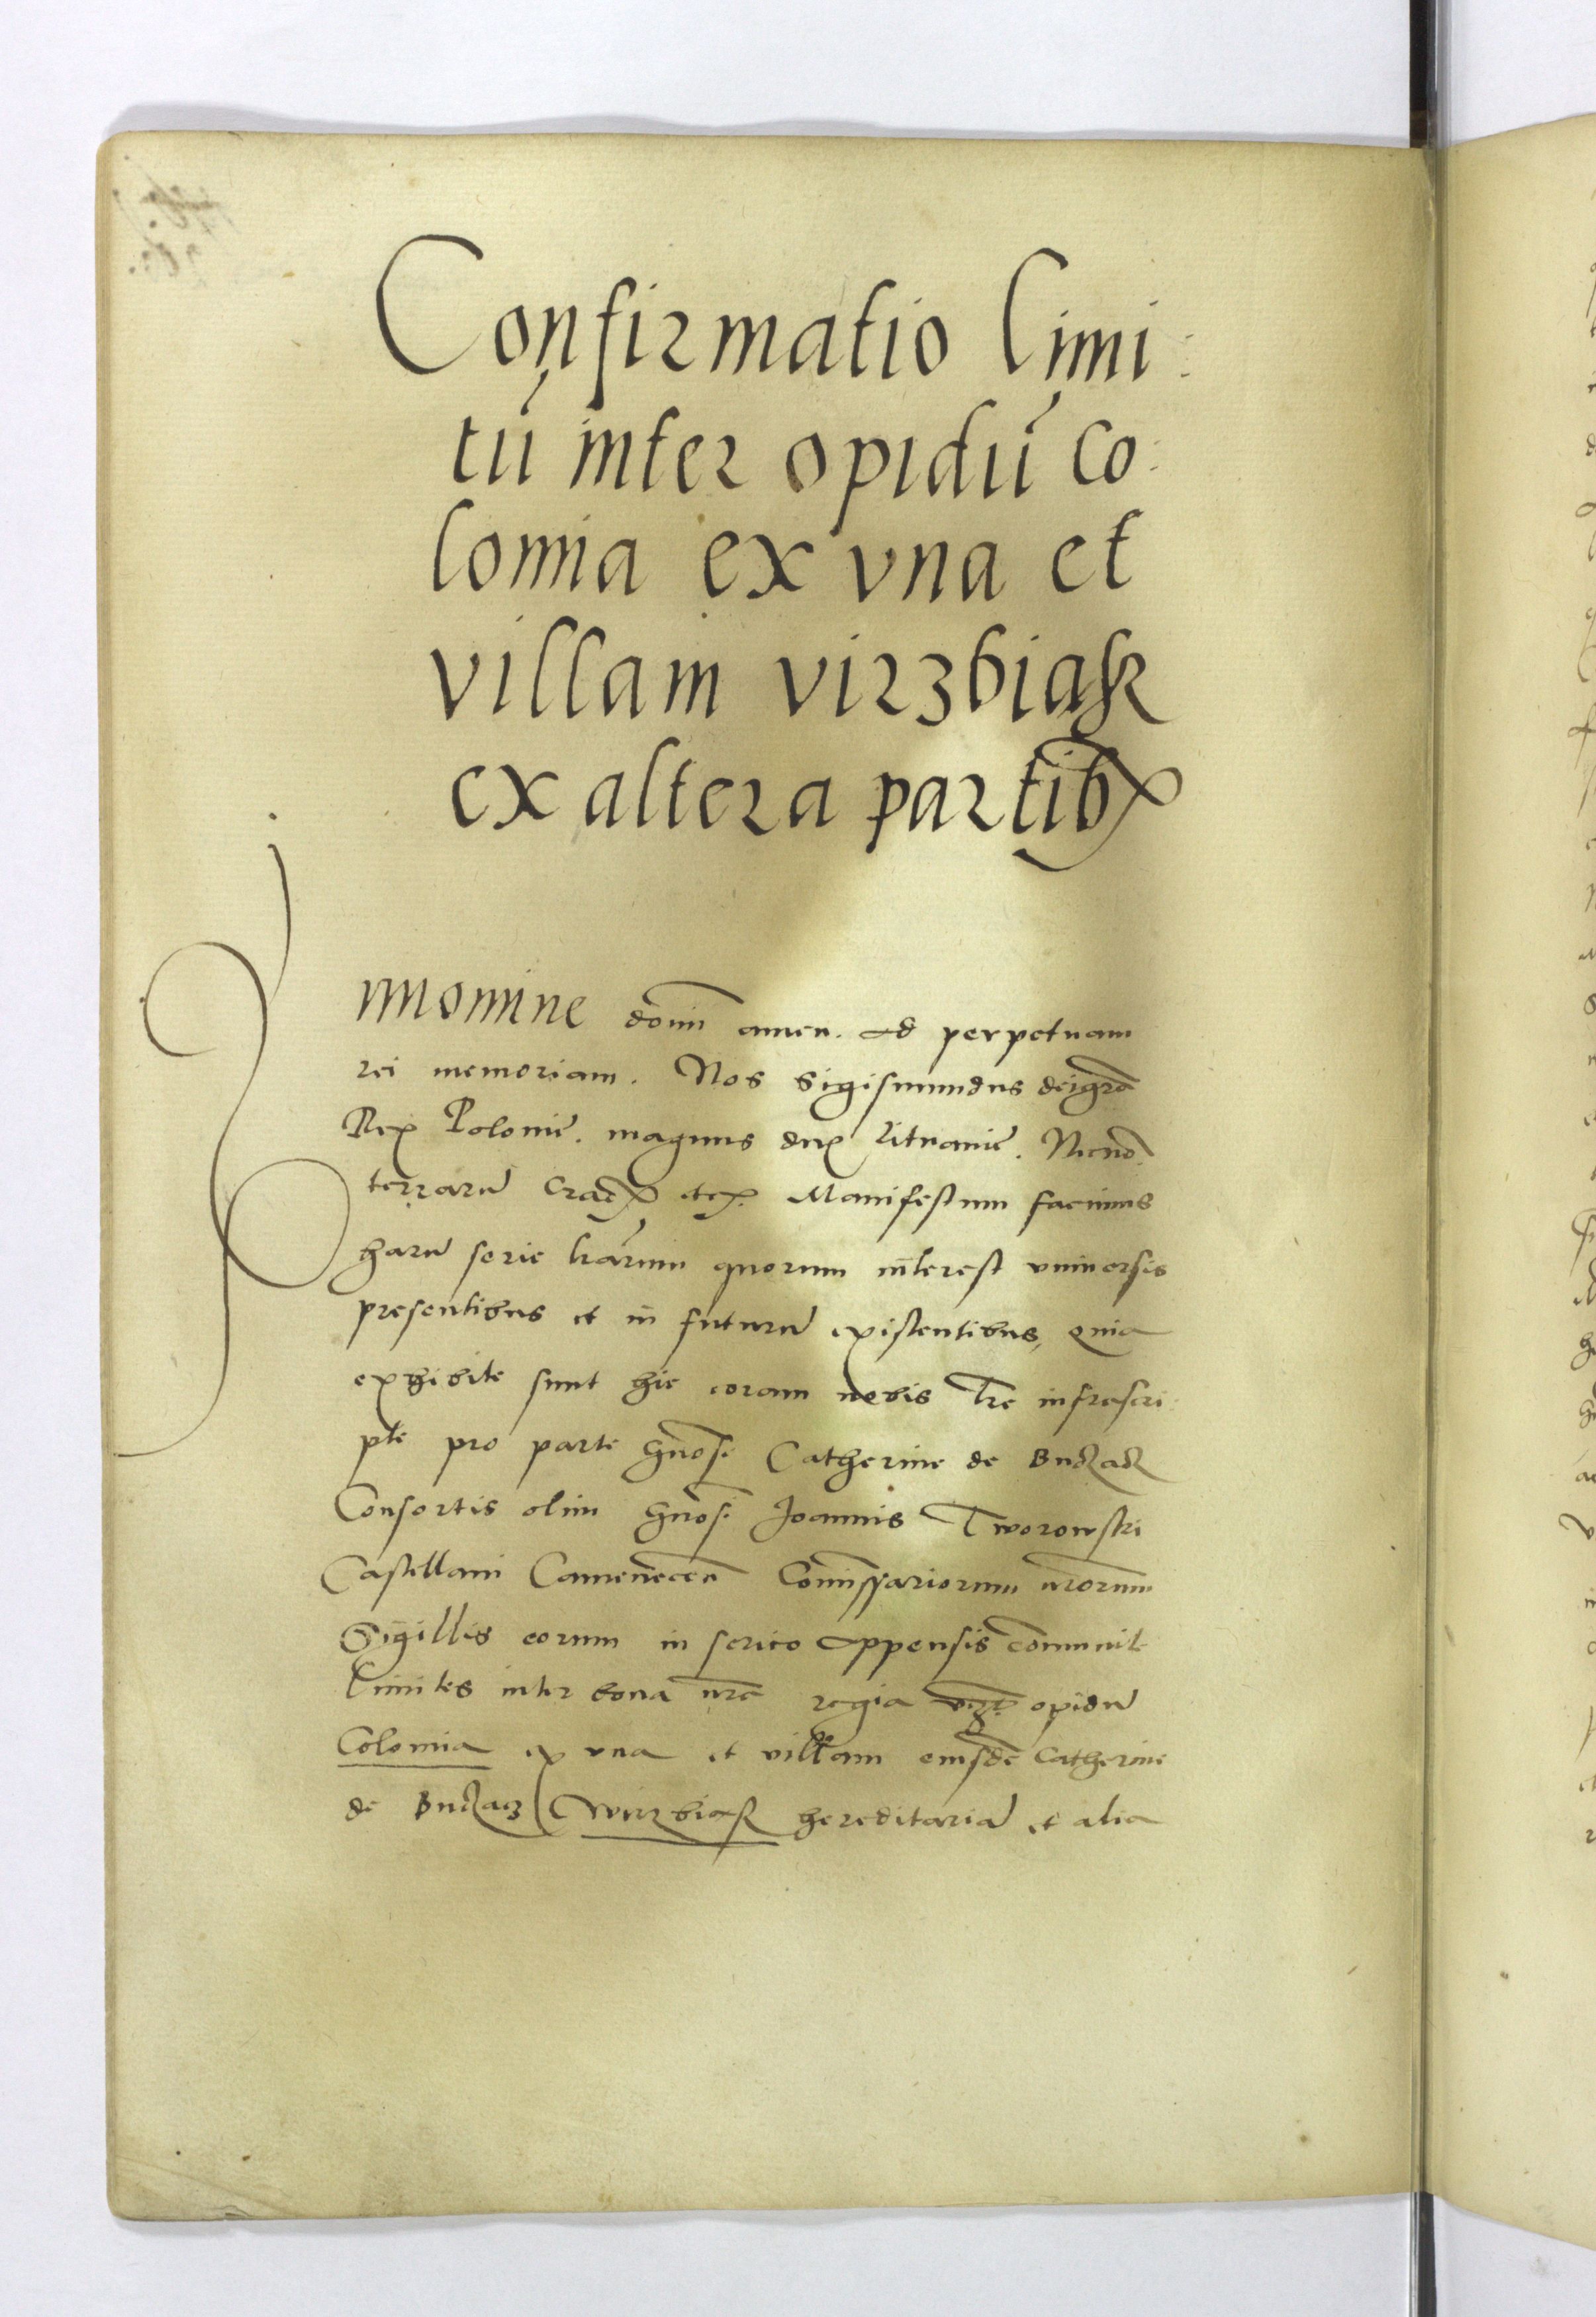 Confirmatio Limi:
tũ inter opidũ Co:
lomia ex vna et
villam virzbiasz
ex altera partib9
Innomine domĩ amen. Ad perpetuam
rei memoriam. Nos Sigismundus deigrã
Rex Polonie. magnus dux Lituanie. Necnõ
terrarũ Crac etc. Manifestum facimus
harũ serie lrarum quorum interest vniuersis
presentibus et in futurũ existentibus, quia
exhibite sunt hic coram nobis lre infrascri:
pte pro parte gnose Catherine de Buczacz
Consortis olim gnosi Joannis Tworowski
Castellani Camenecen Comissariorum nrorum
Sigillis eorum in serico appensis comunit
limites inter bona nra regia opidũ
Colomia ex vna et villam eiusdẽ Catherine
de Buczacz Wirzbiasz hereditariã et alia